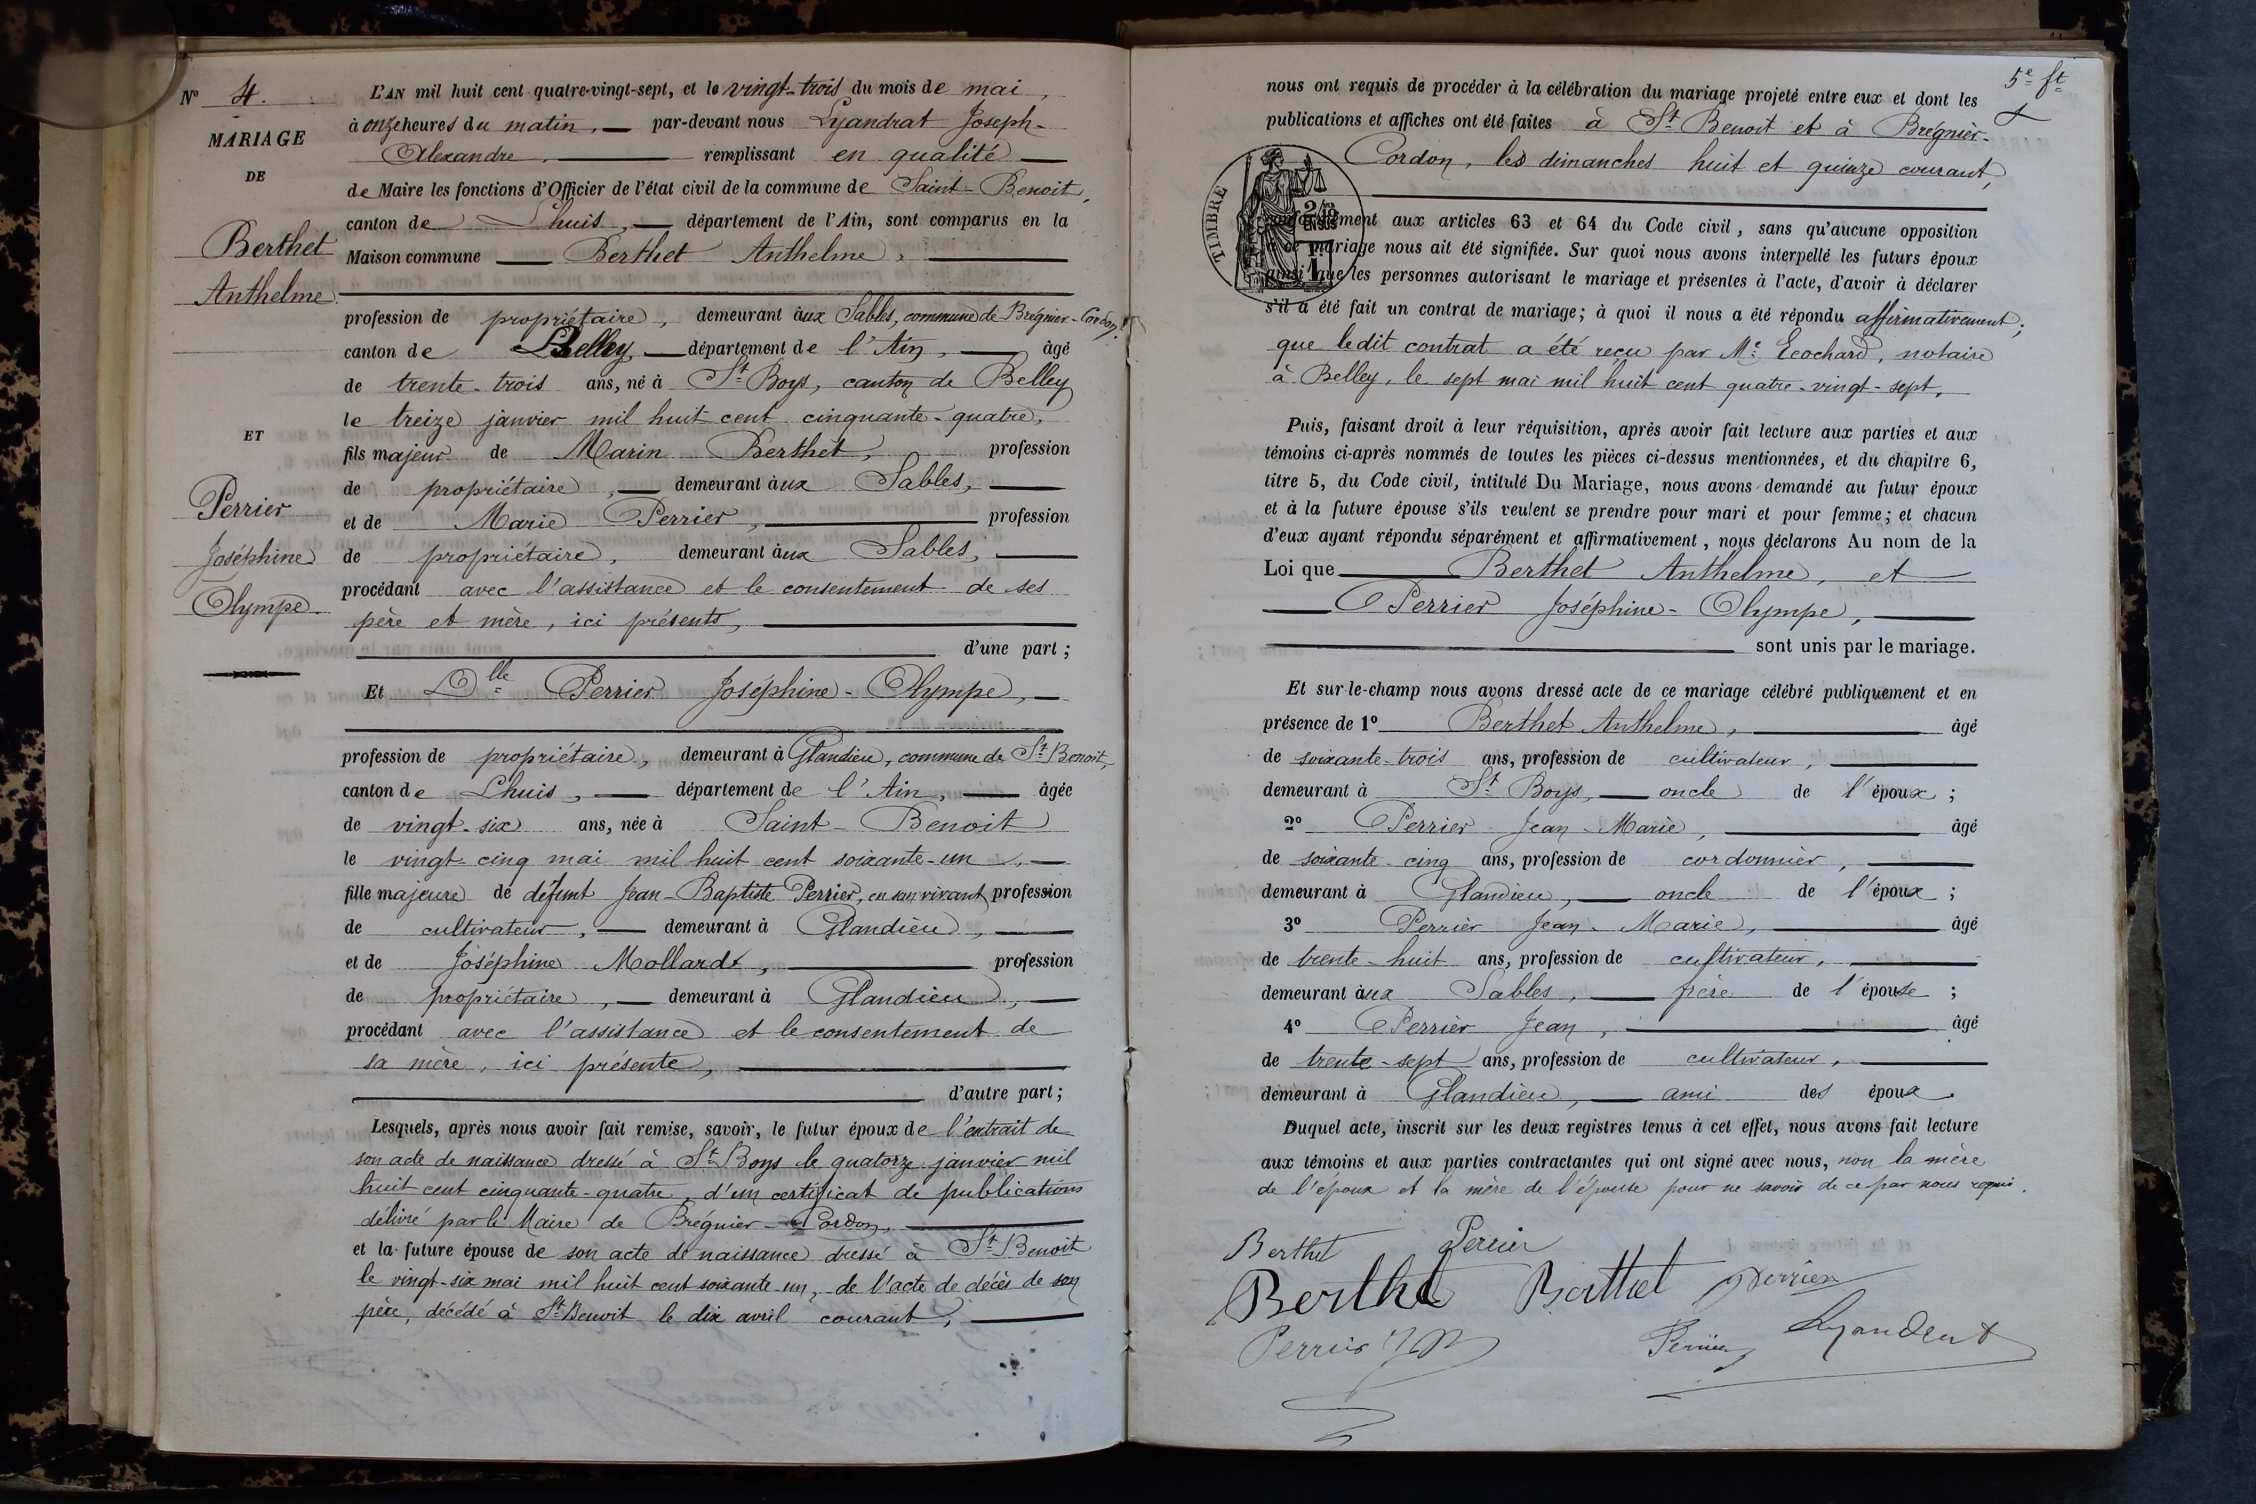 N° 4.
MARIAGE
DE
Berthet
Anthelme
ET
Perrier
Joséphine
Olympe.
L'AN mil huit cent quatre-vingt-sept, et le vingt-trois du mois de mai,
à onze heures du matin, par-devant nous Lyandrat Joseph-
Alexandre, remplissant en qualité
de Maire les fonctions d'Officier de l'état civil de la commune de Saint-Benoit,
canton de Lhuis, département de l'Ain, sont comparus en la
Maison commune Berthet Anthelme,
profession de propriétaire, demeurant aux Sables, commune de Brégnier-Cordon,
canton de Belley, département de l'Ain, âgé
de trente-trois ans, né à St Boys, canton de Belley
le treize janvier mil huit cent cinquante-quatre,
fils majeur de Marin Berthet, profession
de propriétaire, demeurant aux Sables,
et de Marie Perrier, profession
de propriétaire, demeurant aux Sables,
procédant avec l'assistance et le consentement de ses
père et mère, ici présents,
d'une part;
Et Dlle Perrier Joséphine-Olympe,
profession de propriétaire, demeurant à Glandieu, commune de St Benoit,
canton de Lhuis, département de l'Ain, âgée
de vingt-six ans, née à Saint-Benoit
le vingt-cinq mai mil huit cent soixante-un,
fille majeure de défunt Jean-Baptiste Perrier, en son vivant profession
de cultivateur, demeurant à Glandieu,
et de Joséphine Mollard, profession
de propriétaire, demeurant à Glandieu,
procédant avec l'assistance et le consentement de
sa mère, ici présente,
d'autre part;
Lesquels, après nous avoir fait remise, savoir, le futur époux de l'extrait de
son acte de naissance dressé à St Boys le quatorze janvier mil
huit cent cinquante-quatre, d'un certificat de publications
délivré par le Maire de Brégnier-Cordon,
et la future épouse de son acte de naissance dressé à St Benoit
le vingt-six mai mil huit cent soixante-un, de l'acte de décès de son
père, décédé à St Benoit le dix avril courant,
5e ft
nous ont requis de procéder à la célébration du mariage projeté entre eux et dont les
publications et affiches ont été faites à St Benoit et à Brégnier-
Cordon, les dimanches huit et quinze courant,
TIMBRE
2/10
EN SUS
conformément aux articles 63 et 64 du Code civil, sans qu'aucune opposition
à ce mariage nous ait été signifiée. Sur quoi nous avons interpellé les futurs époux
ainsi que les personnes autorisant le mariage et présentes à l'acte, d'avoir à déclarer
s'il a été fait un contrat de mariage; à quoi il nous a été répondu affirmativement;
que ledit contrat a été reçu par Me Ecochard, notaire
à Belley, le sept mai mil huit cent quatre-vingt-sept,
Puis, faisant droit à leur réquisition, après avoir fait lecture aux parties et aux
témoins ci-après nommés de toutes les pièces ci-dessus mentionnées, et du chapitre 6,
titre 5, du Code civil, intitulé Du Mariage, nous avons demandé au futur époux
et à la future épouse s'ils veulent se prendre pour mari et pour femme; et chacun
d'eux ayant répondu séparément et affirmativement, nous déclarons Au nom de la
Loi que Berthet Anthelme, et
Perrier Joséphine-Olympe,
sont unis par le mariage.
Et sur-le-champ nous avons dressé acte de ce mariage célébré publiquement et en
présence de 1° Berthet Anthelme, âgé
de soixante-trois ans, profession de cultivateur,
demeurant à St Boys, oncle de l'époux;
2° Perrier Jean-Marie, âgé
de soixante-cinq ans, profession de cordonnier,
demeurant à Glandieu, oncle de l'époux;
3° Perrier Jean-Marie, âgé
de trente-huit ans, profession de cultivateur,
demeurant aux Sables, frère de l'épouse;
4° Perrier Jean, âgé
de trente-sept ans, profession de cultivateur,
demeurant à Glandieu, ami des époux.
Duquel acte, inscrit sur les deux registres tenus à cet effet, nous avons fait lecture
aux témoins et aux parties contractantes qui ont signé avec nous, non la mère
de l'époux et la mère de l'épouse pour ne savoir de ce par nous requis.
Berthet Perrier
Berthet Berthet Perrier
Perrier JM Perrier Lyandrat